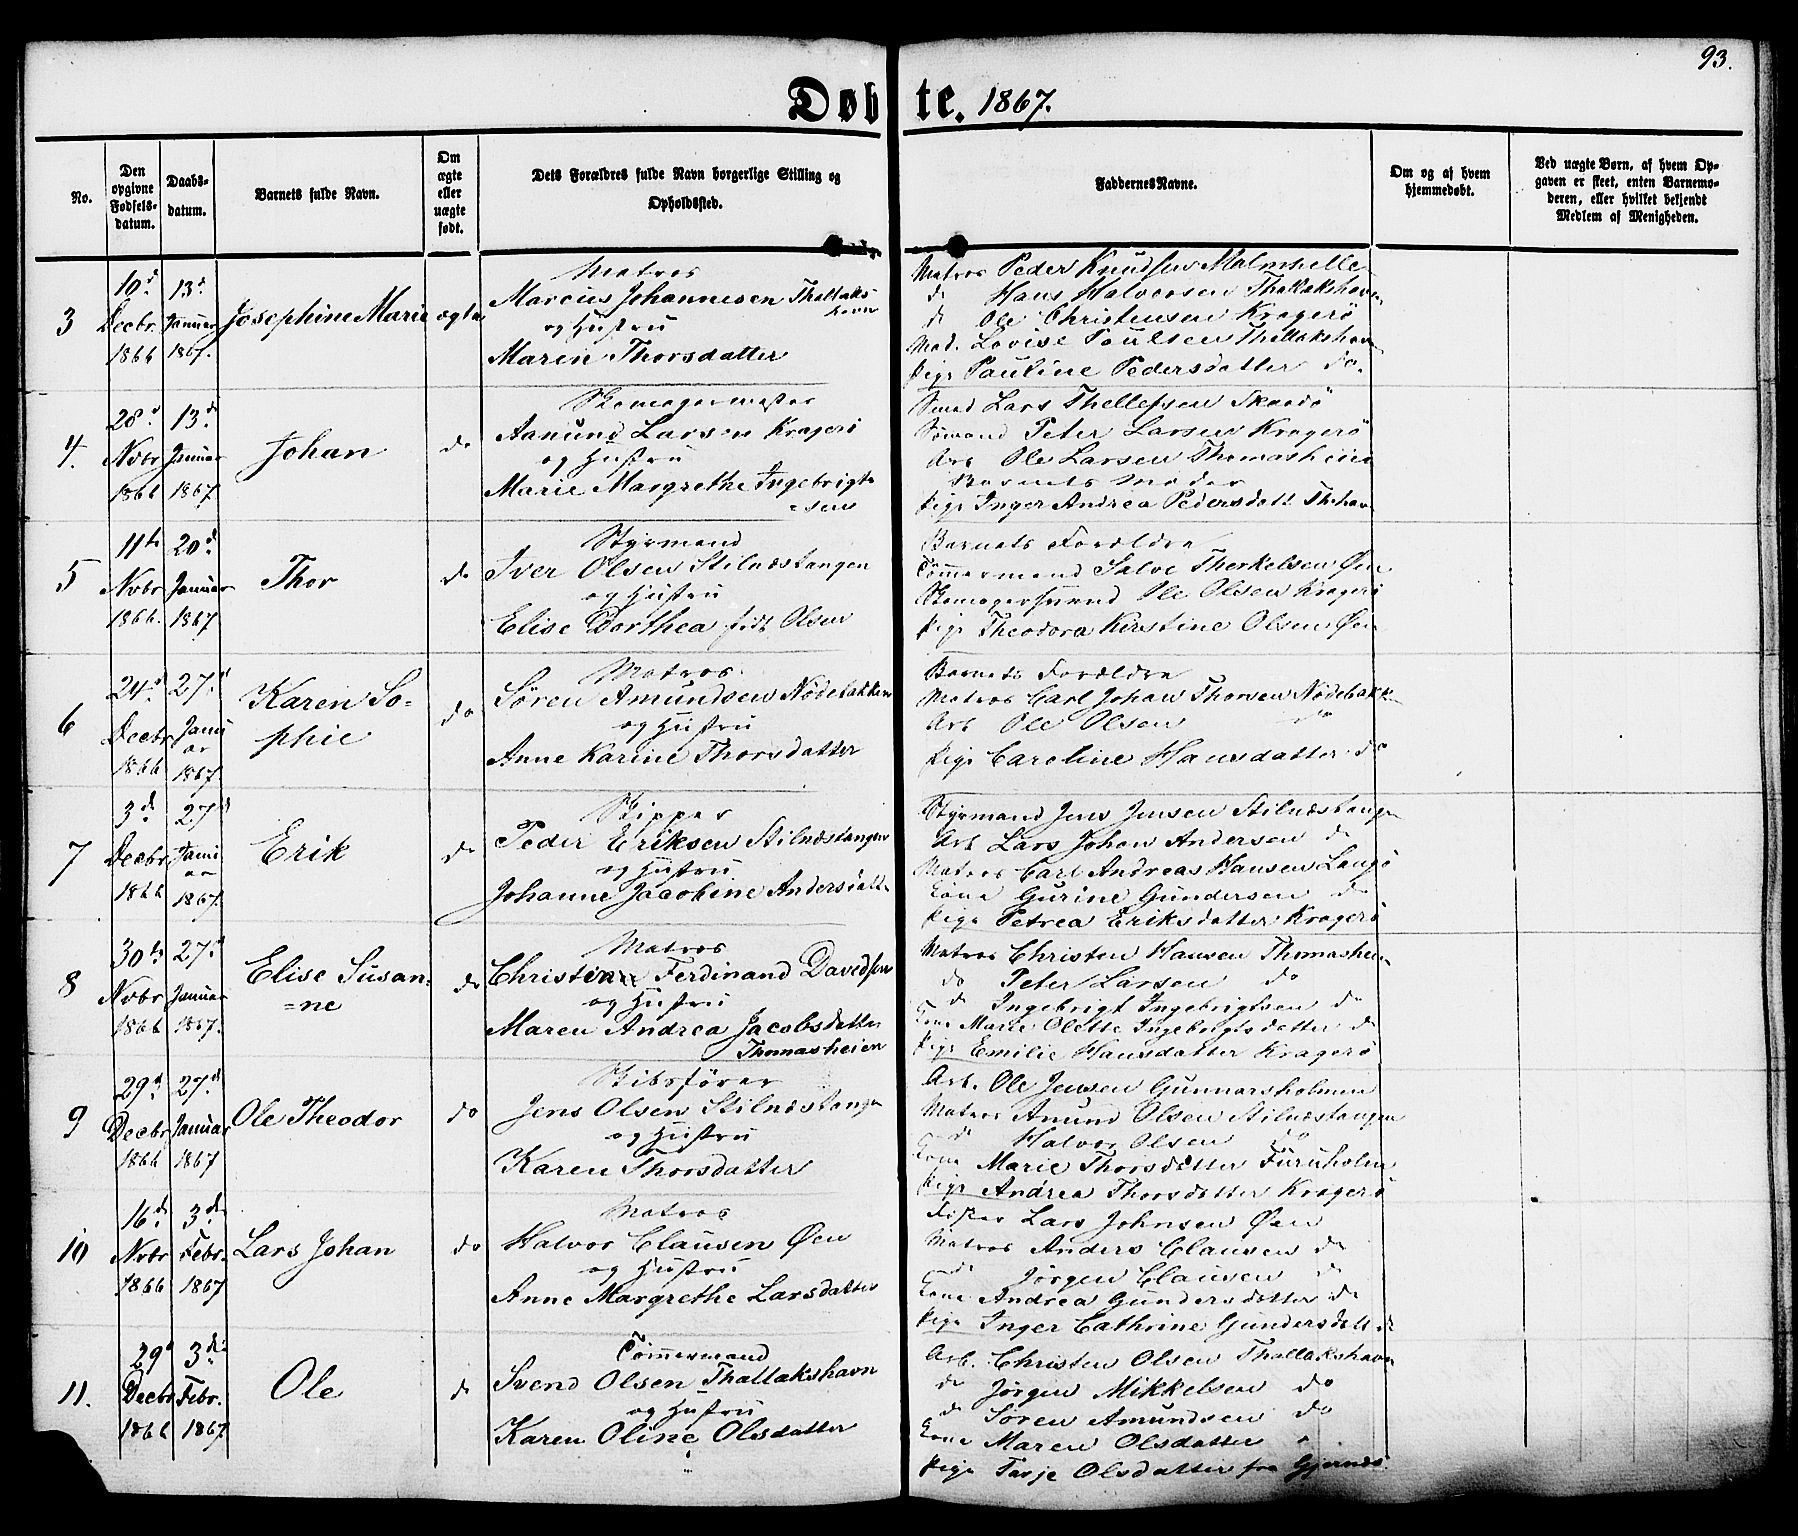 93.
Døbte. 1867.
No.
Den opgivne Fødsels-datum.
Daabs-datum.
Barnets fulde Navn.
Om ægte eller uægte født.
Dets Forældres fulde Navn borgerlige Stilling og Opholdssted.
Faddernes Navne.
Om og af hvem hjemmedøbt.
Ved uægte Børn, af hvem Opgaven er skeet, enten Barnemoderen, eller hvilket bekjendt Medlem af Menigheden.
3
19d Decbr 1866
13d Januar 1867.
Josephine Marie
ægte
Matros
Marcus Johannesen Thallakshavn
og Hustru
Maren Thorsdatter
Matros Peder Knudsen Malmhelle
do Hans Halvorsen Thallakshavn
do Ole Christensen Kragerö
Mad. Lovise Poulsen Thallakshavn
Pige Pauline Pedersdatter do.
4.
28d Nvbr 1866
13d Januar 1867
Johan
do
Skomagermester
Aanund Larsen Kragerö
og Hustru
Marie Margrethe Ingebrigt-
=sen
Smed Lars Thellefsen Skaadö
Sömand Peter Larsen Kragerö
Arb Ole Larsen Thomasheien
Barnets Moder
Pige Inger Andrea Pedersdatt Thhavn
5
11te Nvbr 1866.
20d Januar 1867
Thor
do
Styrmand
Iver Olsen Stilnæstangen
og Hustru
Elise Dorthea födt Olsen
Barnets Forældre
Tömmermand Salve Therkelsen Øen
Skomagersvend Ole Olsen Kragerö
Pige Theodora Kirstine Olsen Øen
6
24d Decbr 1866
27d Januar 1867.
Karen So-
phie
do
Matros
Sören Amundsen Nödebakken
og Hustru
Anne Karine Thorsdatter
Barnets Forældre
Matros Carl Johan Thorsen Nödebakk
Arb Ole Olsen do
Pige Caroline Hansdatter do
7
3d Decbr 1866
27d Januar 1867.
Erik
do
Skipper
Peder Eriksen Stilnæstangen
og Hustru
Johanne Jacobine Andersdatt
Styrmand Jens Jensen Stilnæstangen
Arb Lars Johan Andersen do
Matros Carl Andreas Hansen Langö
Kone Gurine Gundersen do
Pige Petrea Eriksdatter Kragerö
8
30te Nvbr 1866
27d Januar 1867.
Elise Susan-
=ne
do
Matros
Christian Ferdinand Davidsen
og Hustru
Maren Andrea Jacobsdatter
Thomasheien
Matros Christen Hansen Thomasheien
do Peter Larsen do
do Ingebrigt Ingebrigtsen do
Kone Marie Olette Ingebrigtsdatter do
Pige Emilie Hansdatter Kragerö
9
29d Decbr 1866
27d Januar 1867
Ole Theodor
do
Skibsförer
Jens Olsen Stilnæstangen
og Hustru
Karen Thorsdatter
Arb. Ole Jensen Gunnarsholmen
Matros Amund Olsen Stilnæstangen
do Halvor Olsen do
Kone Marie Thorsdatter Furuholm
Pige Andrea Thorsdatter Kragerö
10
16de Nvbr 1866
3de Febr. 1867
Lars Johan
do
Matros
Halvor Clausen Øen
og Hustru
Anne Margrethe Larsdatter
Fisker Lars Johnsen Øen
Matros Anders Clausen do
do Jörgen Clausen do
Kone Andrea Gundersdatter do
Pige Inger Cathrine Gundersdatt do
11.
29d Decbr 1866
3de Febr. 1867
Ole
do
Tömmermand
Svend Olsen Thallakshavn
og Hustru
Karen Oline Olsdatter
Arb. Christen Olsen Thallakshavn
do Jörgen Mikkelsen do
do Sören Amundsen do
Kone Maren Olsdatter "
Pige Tarje Olsdatter fra